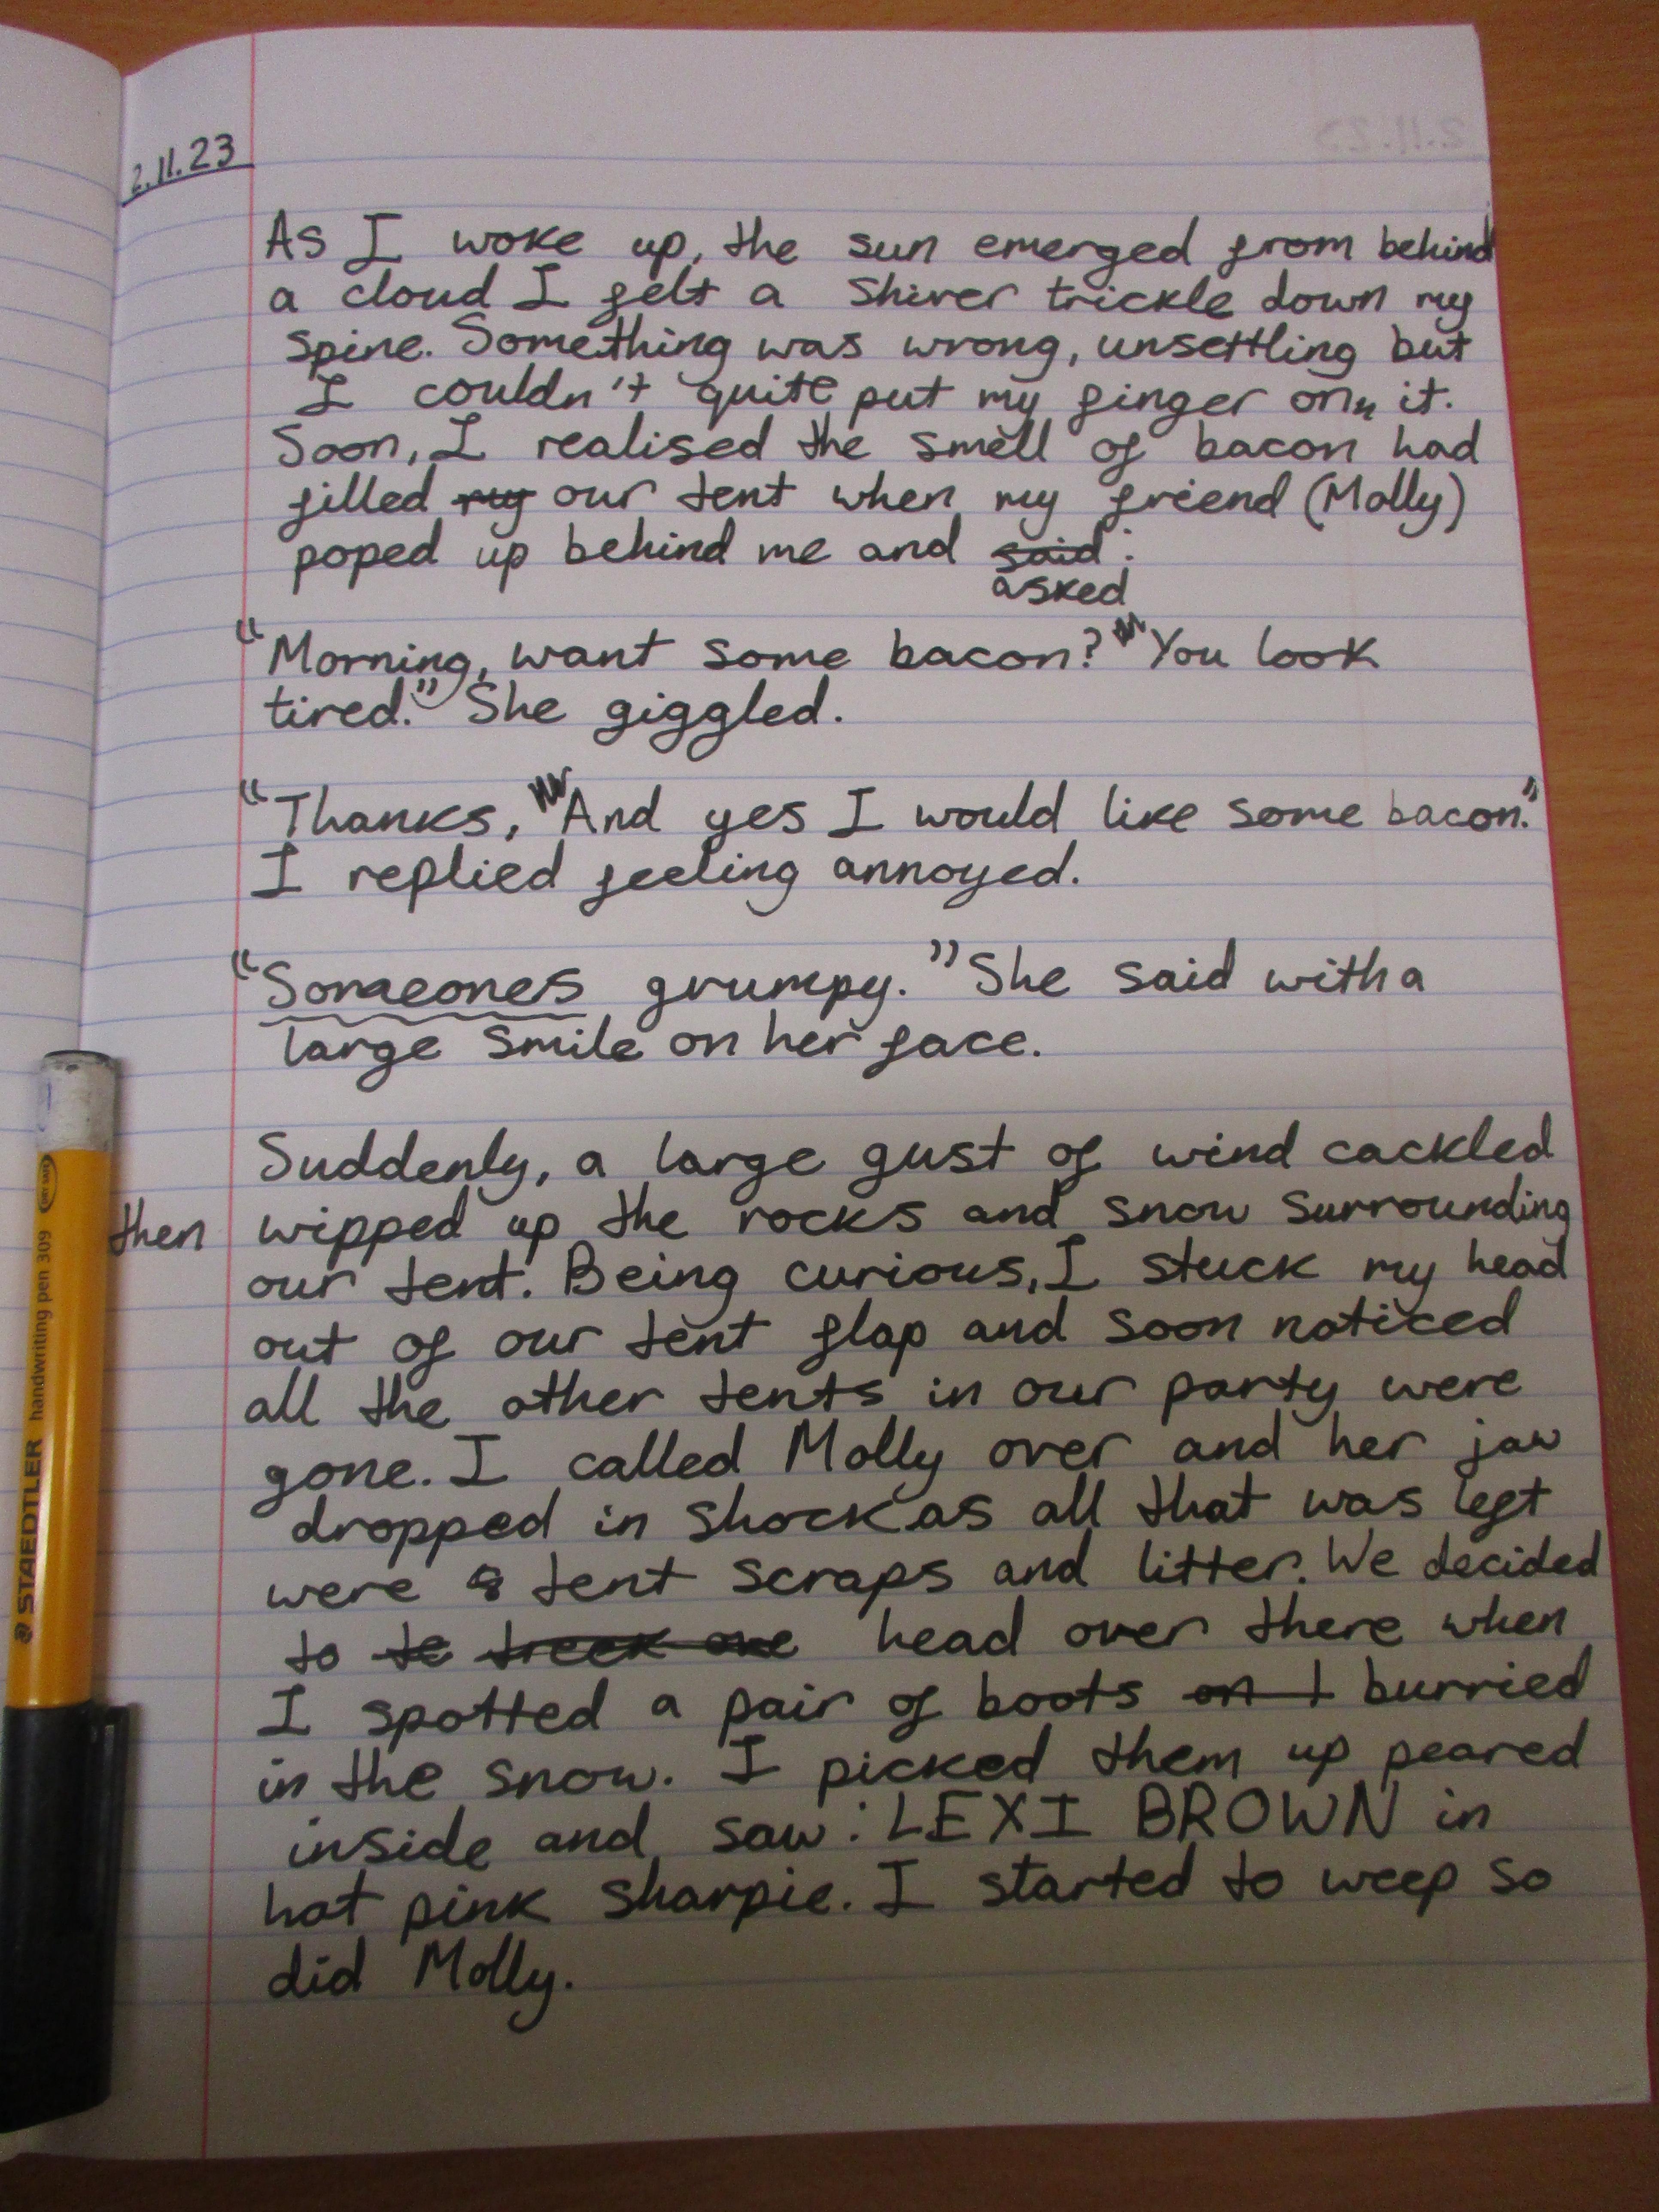 2.11.23
As I woke up, the sun emerged from behind
a cloud I felt a shiver trickle down my
spine. Something was wrong, unsettling but
I couldn't quite put my finger on it.
Soon, I realised the smell of bacon had
filled my our tent when my friend (Molly)
poped up behind me and said:
asked
"Morning, want some bacon? You look
tired." She giggled.
"Thanks, And yes I would like some bacon."
I replied feeling annoyed.
"Someones grumpy." She said with a
large smile on her face.
Suddenly, a large gust of wind cackled
then wipped up the rocks and snow surrounding
our tent. Being curious, I stuck my head
out of our tent flap and soon noticed
all the other tents in our party were
gone. I called Molly over and her jaw
dropped in shock as all that was left
were tent scraps and litter. We decided
to te treek ove head over there when
I spotted a pair of boots on t burried
in the snow. I picked them up peared
inside and saw: LEXI BROWN in
hot pink sharpie. I started to weep so
did Molly.
STAEDTLER handwriting pen 309